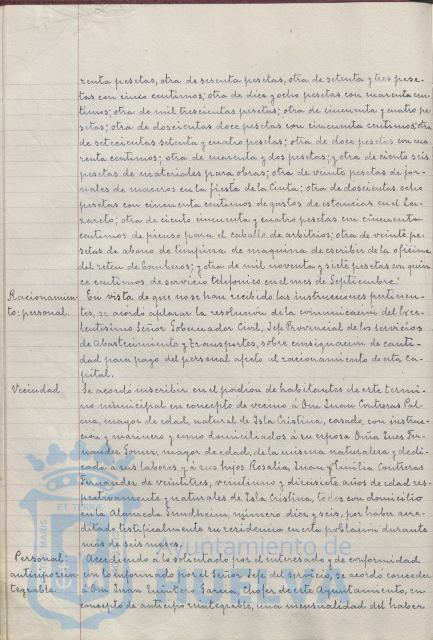 renta pesetas, otra de sesenta pesetas, otra de setenta y tres pese-
tas con cinco centimos; otra de diez y ocho pesetas con cuarenta cen-
timos; otra de mil trescientas pesetas; otra de cincuenta y cuatro pe-
setas; otra de doscientas doce pesetas con cincuenta centimos; otra
de setecientas setenta y cuatro pesetas; otra de doce pesetas con cua-
renta centimos; otra de cuarenta y dos pesetas; y otra de ciento seis
pesetas de materiales para obras; otra de veinte pesetas de jor-
nales de maceros en la fiesta de la Cinta; otra de doscientas ocho
pesetas con cincuenta centimos de gastos de estancias en el La-
zareto; otra de ciento cincuenta y cuatro pesetas con cincuenta
centimos de pienso para el caballo de arbitrios; otra de veinte pe-
setas de abono de limpieza de maquina de escribir de la oficina
del reten de bomberos; y otra de mil noventa y siete pesetas con quin-
ce centimos de servicio telefonico en el mes de Septiembre.
Racionamien-
to: personal.
En vista de que no se han recibido las instrucciones pertinen-
tes, se acordó aplazar la resolución de la comunicación del Exce-
lentisimo Señor Gobernador Civil, Jefe Provincial de los Servicios
de Abastecimiento y Transportes, sobre consignacion de canti-
dad para pago del personal afecto al racionamiento de esta Ca-
pital.
Vecindad
Se acordó inscribir en el padrón de habitantes de este termi-
no municipal en concepto de vecino á Don Juan Contreras
mayor de edad, natural de Isla Cristina, casado, con instruc-
ción y marinero y como domiciliados á su esposa Doña Ines Fer-
nandez mayor de edad, de la misma naturaleza y dedi-
cada á sus labores y á sus hijos Rosalia, Juan y Emilia Contreras
Fernandez de veintitres, veintiuno y diecisiete años de edad res-
pectivamente y naturales de Isla Cristina, todos con domicilio
en la Alameda Sundheim número diez y seis, por haber acre-
ditado testificalmente su residencia en esta población durante
mas de seis meses.
Personal:
anticipo rein-
tegrable.
Accediendo a lo solicitado por el interesado y de conformidad
con lo informado por el Señor Jefe del Servicio, se acordó conceder
a Don Juan Quintero Garcia, Chofer de este Ayuntamiento, en
concepto de anticipo reintegrable, una mensualidad del haber
Ayuntamiento de